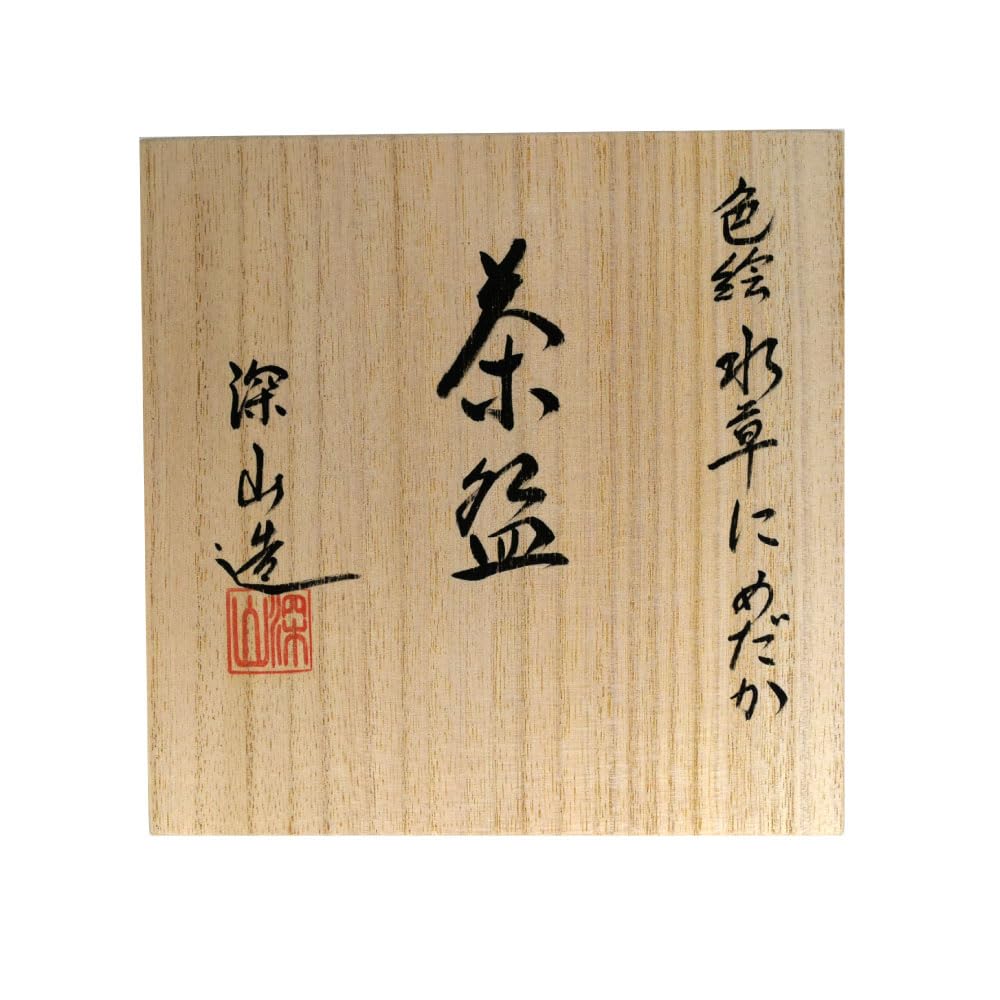 色絵 水草に めだか
茶盌
深山造
深山